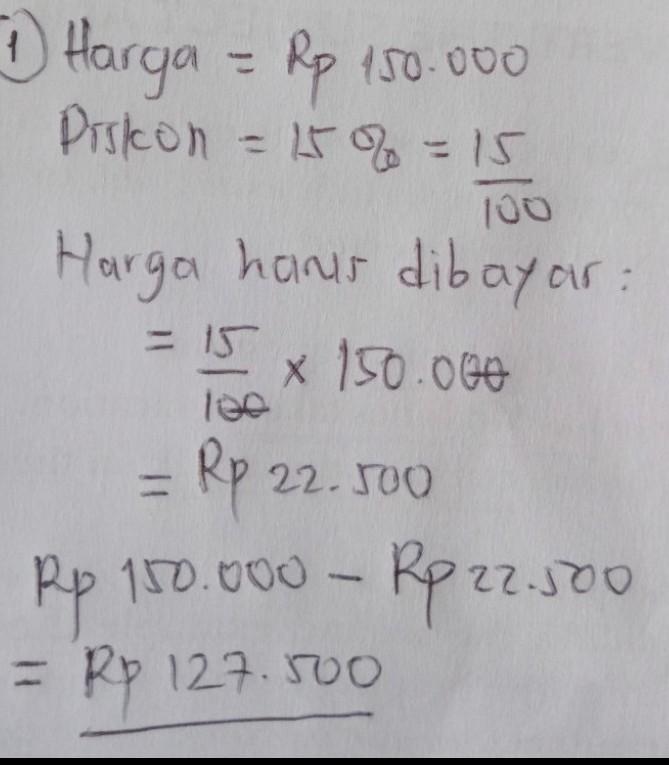 1 Harga = Rp 150.000
Diskon = 15 % = 15/100
Harga harus dibayar :
= 15/100 x 150.000
= Rp 22.500
Rp 150.000 – Rp 22.500
= Rp 127.500